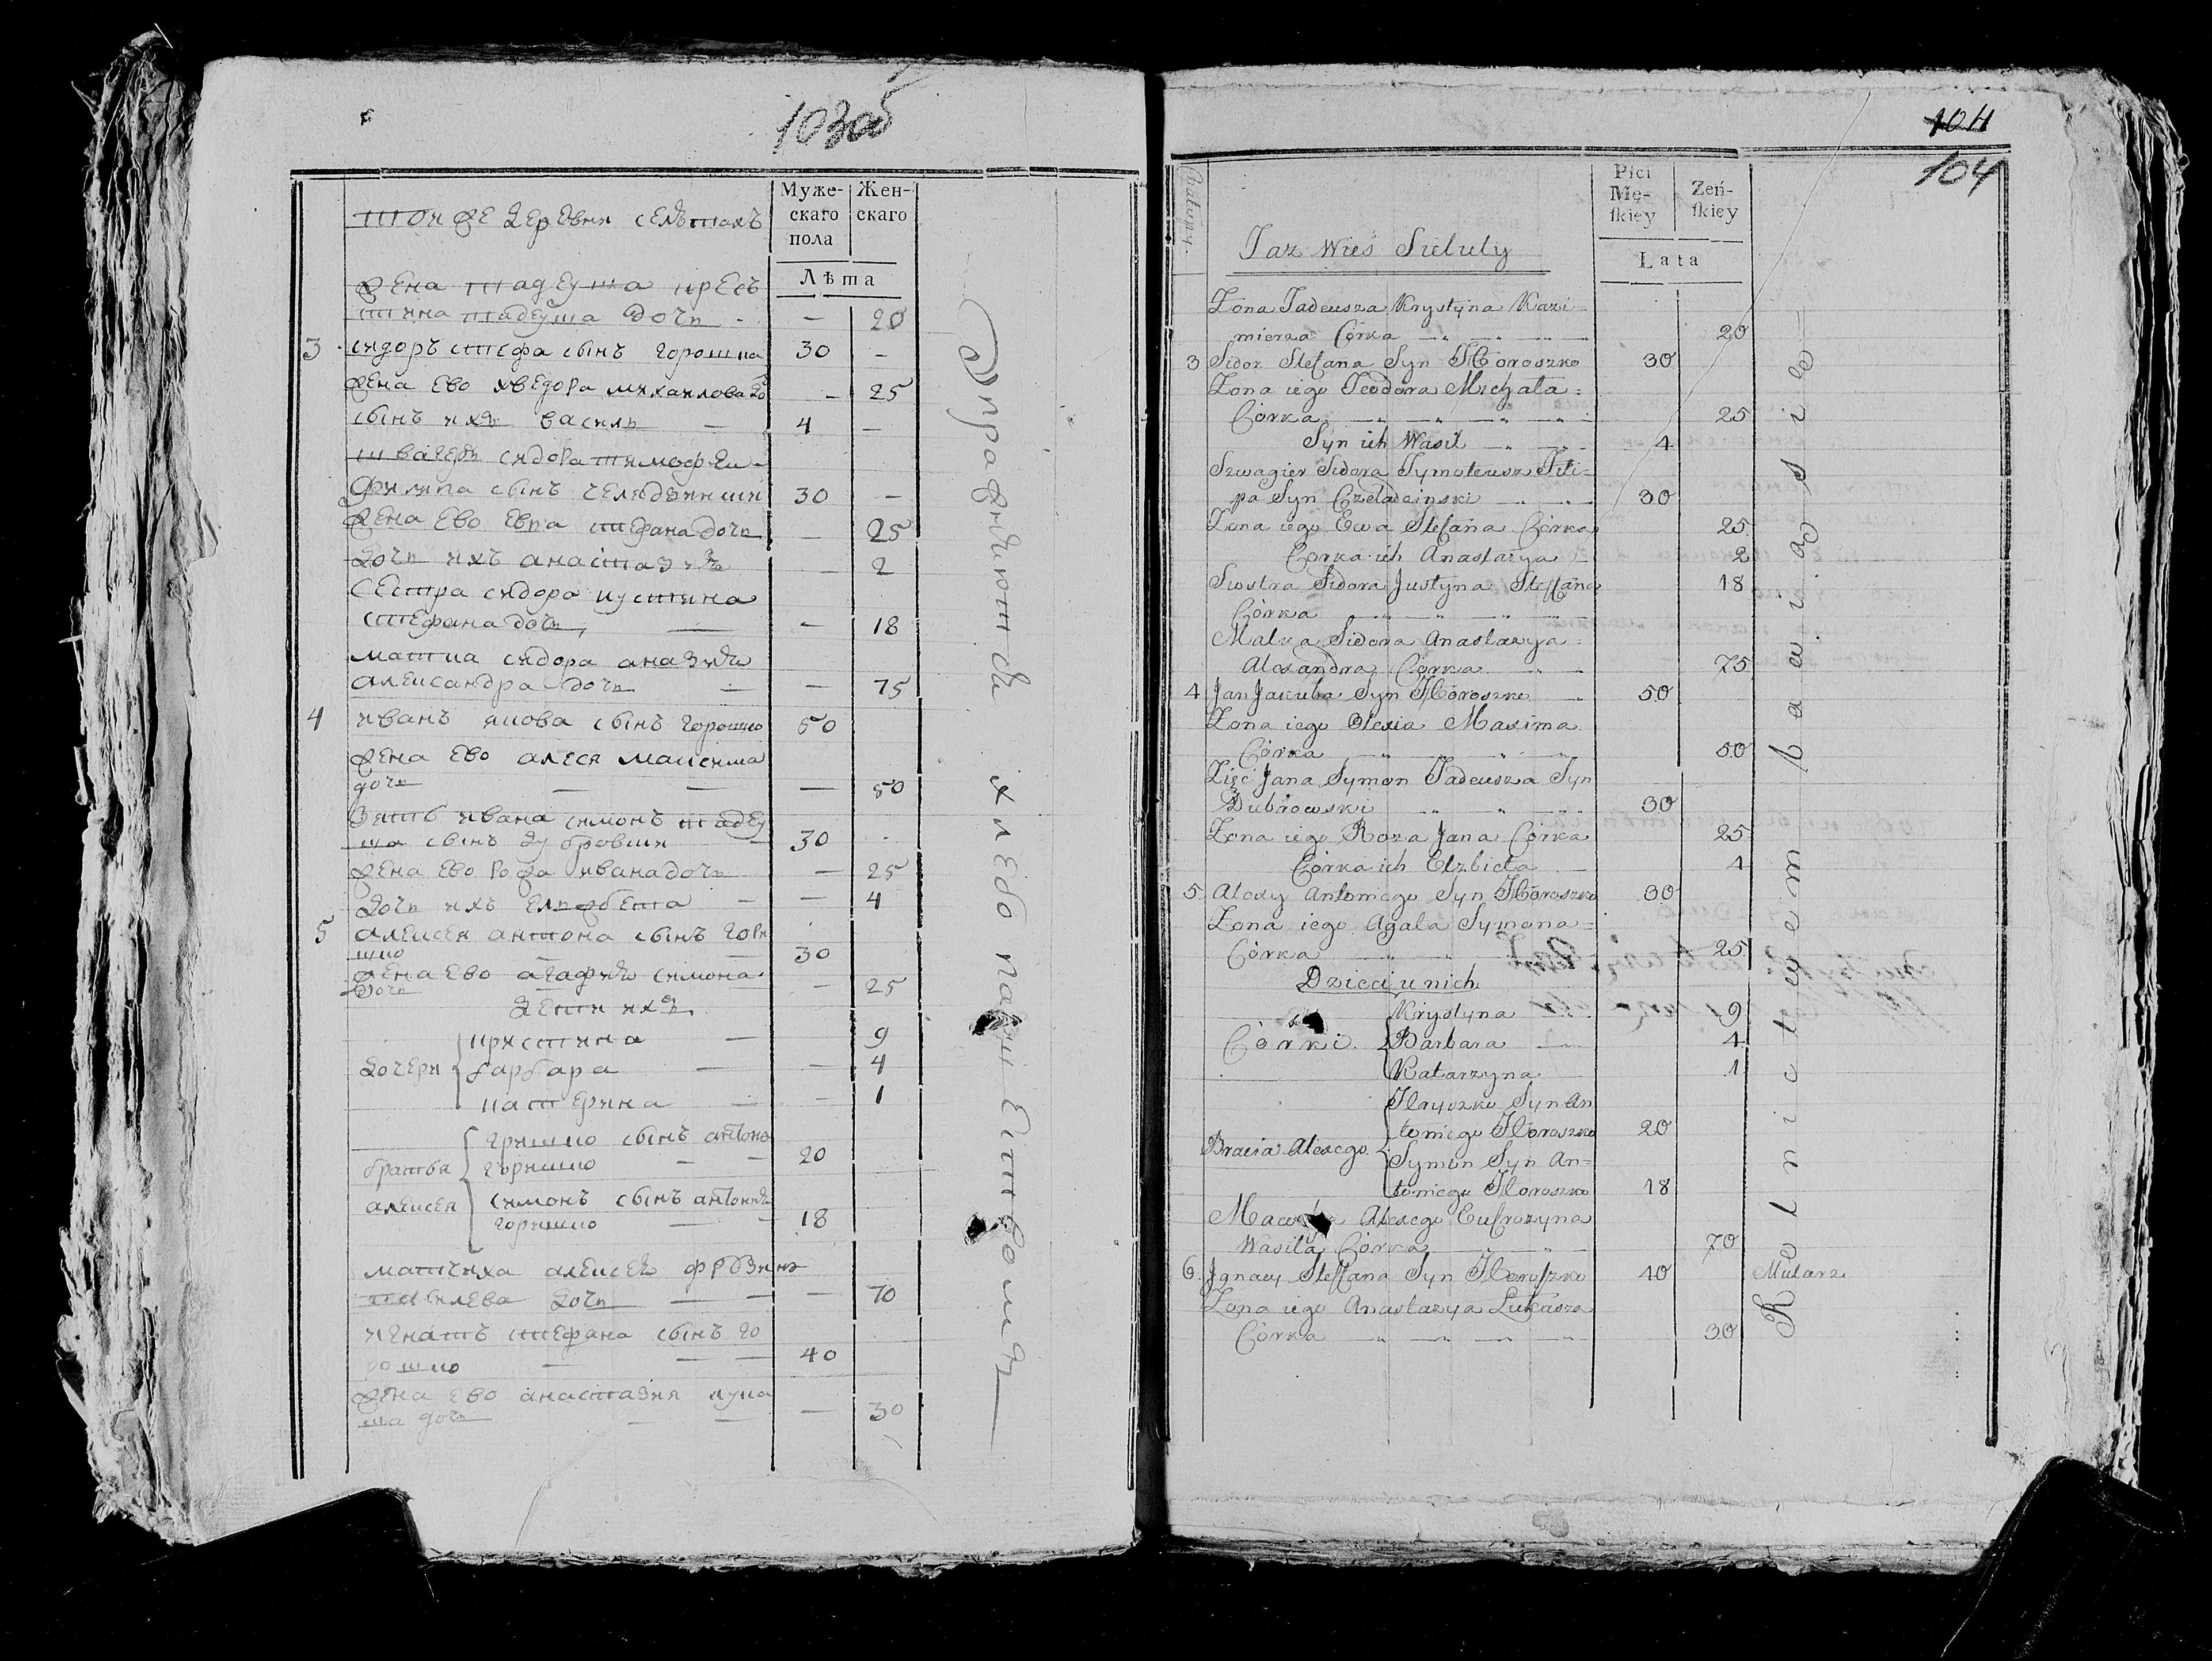 103об
Муже-
скаго
пола
Жен-
скаго
Лѣта
жена тадеуша крес
тина тадеуша дочь - — 20
3 сидоръ стефа сынъ горошка 30 -
жена ево хведора михаилова до - 25
сынъ ихъ василь — 4 —
швагеръ сидора тимофеи
филипа сынъ челядзински 30 -
жена ево евка стефана дочь — 25
дочь ихъ анастазия — 2
сестра сидора иустина
стефана дочь — — 18
матка сидора
александра дочь — — 75
4 иванъ якова сынъ горошко 50
жена ево алеся максима
дочь — — — 50
зять ивана симонъ тадеу
ша сынъ дубровски 30 -
жена ево рожа ивана дочь — 25
дочь ихъ — - 4
5 алексеи антона сынъ горо
шко — 30
жена ево агафия симона
дочь — — 25
дети ихъ
дочери
кристина — 9
барбара — — 4
катерина — - 1
братья
алексея
гришко сынъ антона
горошко — — 20
симонъ сынъ
горошко — - 18
матчиха алексея
дочь — — — 70
игнатъ стефана сынъ го
рошко — — — 40
жена ево анастазия лука
ша дочь — — — 30
хлебопа
104
104
Płci
Mę-
ſkiey
Żeń-
ſkiey
Lata
Taz Wieś Sieluty
Zona Tadeusza Krystyna Kazi=
mierza Córka 20
3 Sidor Stefana Syn Horoszko 30
Zona iego Teodora Michała=
Córka 25
Syn ich Wasil 4
Szwagier Sidora Tymoteusz Fili=
pa Syn Czeladzinski 30
Zona iego Ewa Stefana Córka 25
Córka ich Anastazya 2
Siostra Sidora Justyna Steffana 18
Córka
Matka Sidora Anastazya=
Alexandra Córka 75
4 Jan Jakuba Syn Horoszko 50
Zona iego Olexia Maxima
Córka 50
Zięć Jana Symon Tadeusza Syn
Dubrowski 30
Zona iego Roza Jana Córka 25
Córka ich Elzbieta 4
5 Alexy Antoniego Syn Horoszko 30
Zona iego Agata Symona=
Córka 25
Dzieci u nich
Córki
Krystyna 9
Barbara 4
Katarzyna 1
Bracia Alexego
Hryszko Syn An
toniego Horoszko 20
Symon Syn An=
toniego Horoszko 18
Alexego Eufrozyna
Wasila Córka 70
6. Jgnacy Steffana Syn Horoſzko 40 Mularz
Zona iego Anastazya Łukasza
Córka 30
Rolnictwem bawią się